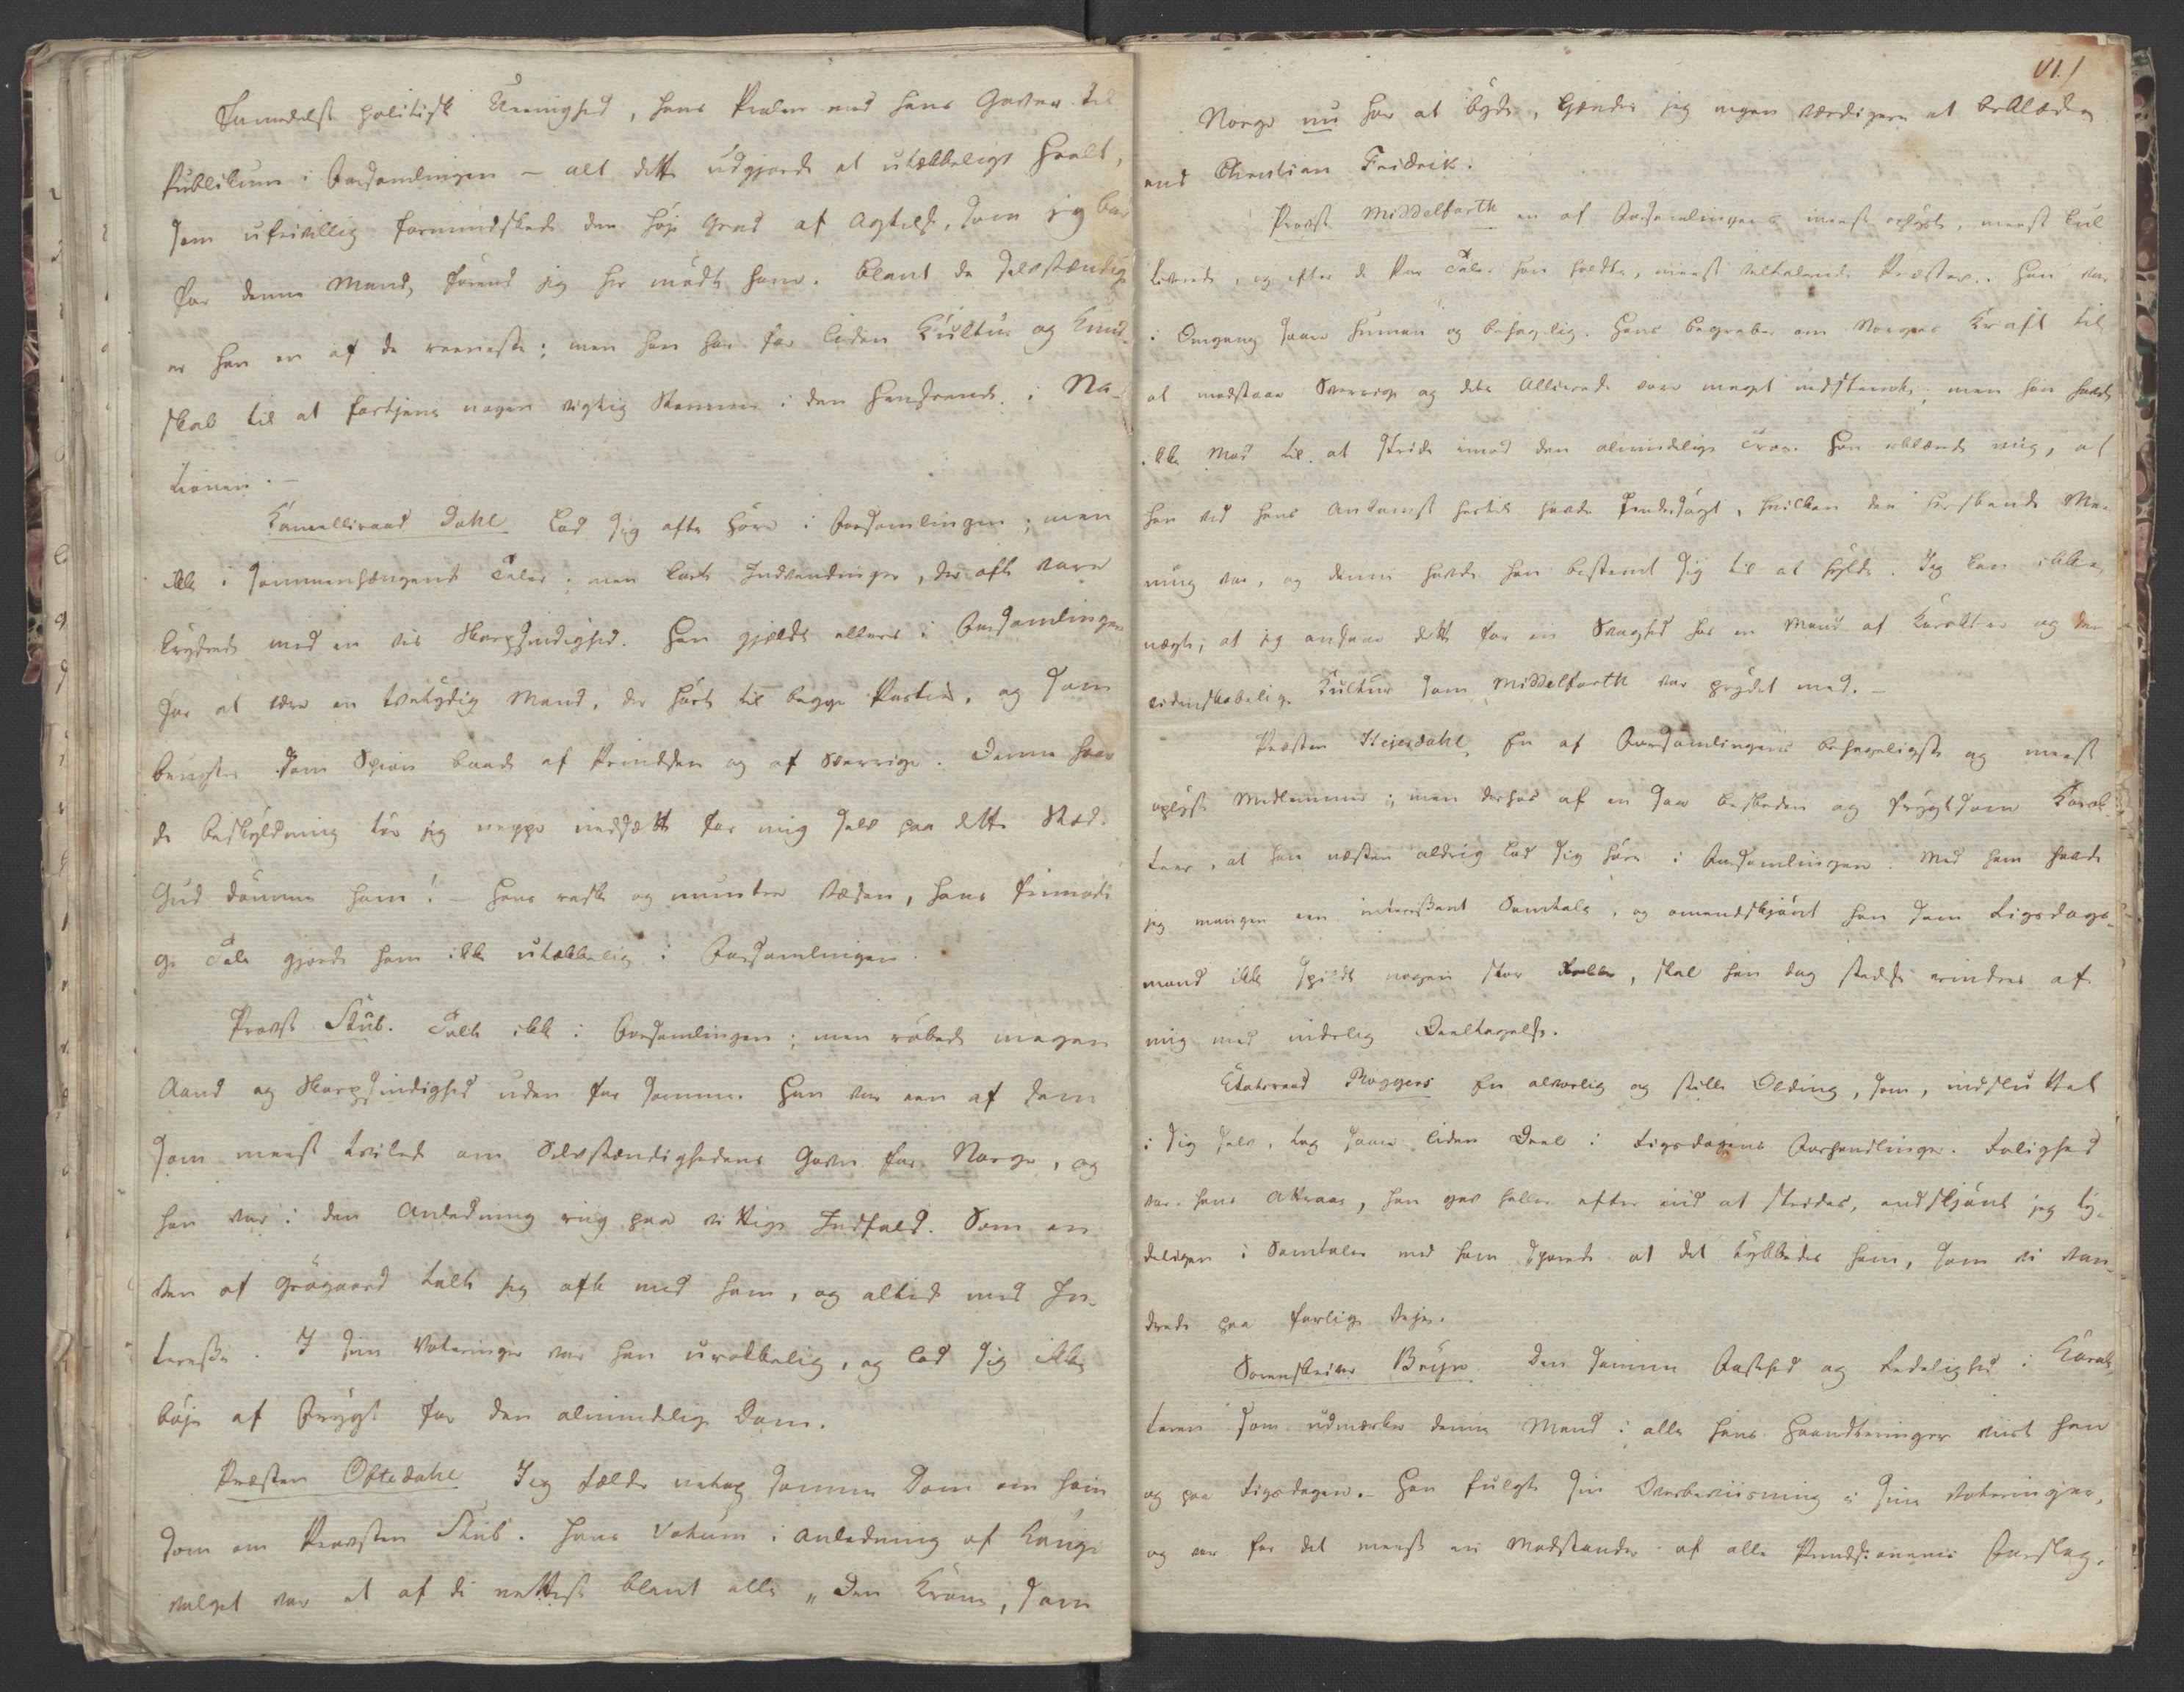 politisk Uenighed, hans Pralen med hans Gaver til
Publikum i Forsamlingen – alt dette udgjorde et utækkeligt Heelt,
som ufrivillig formindskede den høje Grad af Agtelse, som jeg bar
for denne Mand, førend jeg her mødte ham. Blant de Selvstændige
er han en af de reeneste; men han har for liden Kultur og Kund-
skab til at fortjene nogen vigtig Stemme i den Henseende i Na-
tionen. –
Kancelliraad Dahl lod sig ofte høre i Forsamlingen; men
ikke i sammenhængende Taler; men korte Indvendinger, der ofte vare
krydrede med en vis Skarpsindighed. Han gjældte ellers i Forsamlingen
for at være en tvetydig Mand, der hørte til begge Partier, og som
benyttes som Spion baade af Prindsen og af Sverrige. Denne haar-
de Beskyldning tør jeg neppe nedsætte for mig selv paa dette Sted.
Gud dømme ham! – Hans raske og muntre Væsen, hans frimodi-
ge Tale gjorde ham ikke utækkelig i Forsamlingen.
Provst Stub. Talte ikke i Forsamlingen; men røbede megen
Aand og Skarpsindighed uden for samme. Han var een af dem
som meest tvilede om Selvstændighedens Gavn for Norge, og
han var i den Anledning riig paa vittige Indfald. Som en
Ven af Grøgaard talte jeg ofte med ham, og altid med In-
teresse. I sine Voteringer var han urokkelig, og lod sig ikke
bøje af Frygt for den almindelige Dom.
Præsten Oftedahl Jeg fælder netop samme Dom om ham
som om Provsten Stub. Hans Votum i Anledning af Konge
valget var et af de netteste blant alle „Den Krone, som
VI.)
Norge nu har at byde, kjender jeg ingen værdigere at beklæde
end Christian Fridrik.
Provst Middelfarth en af Forsamlingens meest oplyste, meest kul
tiverede, og efter de Par Taler han holdte, meest veltalende Præster. Han var
i Omgang saare human og behagelig. Hans Begreber om Norges Kraft til
at modstaae Sverrige og dets Allierede vare meget nedstemte, men han havde
ikke Mod til at stride imod den almindelige Troe. Han erklærede mig, at
han ved hans Ankomst hertil havde hvilken den herskende Mee-
ning var, og denne havde han bestemt sig til at hylde. Jeg kan ikke
nægte, at jeg ansaae dette for en Svaghed hos en Mand af Karakter og den
videnskabelige Kultur som Middelfarth var prydet med. –
Præsten Hejerdahl, En af Forsamlingens behageligste og meest
oplyste Medlemmer; men derhos af en saa beskeden og frygtsom Karak-
teer, at han næsten aldrig lod sig høre i Forsamlingen. Med ham havde
jeg mangen een interessant Samtale, og omendskjønt han som Rigsdags-
mand ikke spilede nogen stor Rolle, skal han dog stedse erindres af
mig med inderlig Deeltagelse.
Etatsraad Roggers En alvorlig og stille Olding, som, indsluttet
i sig selv, tog saare liden Deel i Rigsdagens Forhandlinger. Rolighed
var hans Attraae, han gav heller efter end at strides, endskjønt jeg ty-
deligen i Samtaler med ham sporede at det tyktes ham, som vi van-
drede paa farlige Veje.
Sorenskriver Bryn. Den samme Fasthed og Redelighed i Karak-
teren som udmærker denne Mand i alle hans Haandteringer viste han
og paa Rigsdagen. Han fulgte sin Overbeviisning i sine Voteringer,
og var for det meeste en Modstander af alle Forslag.